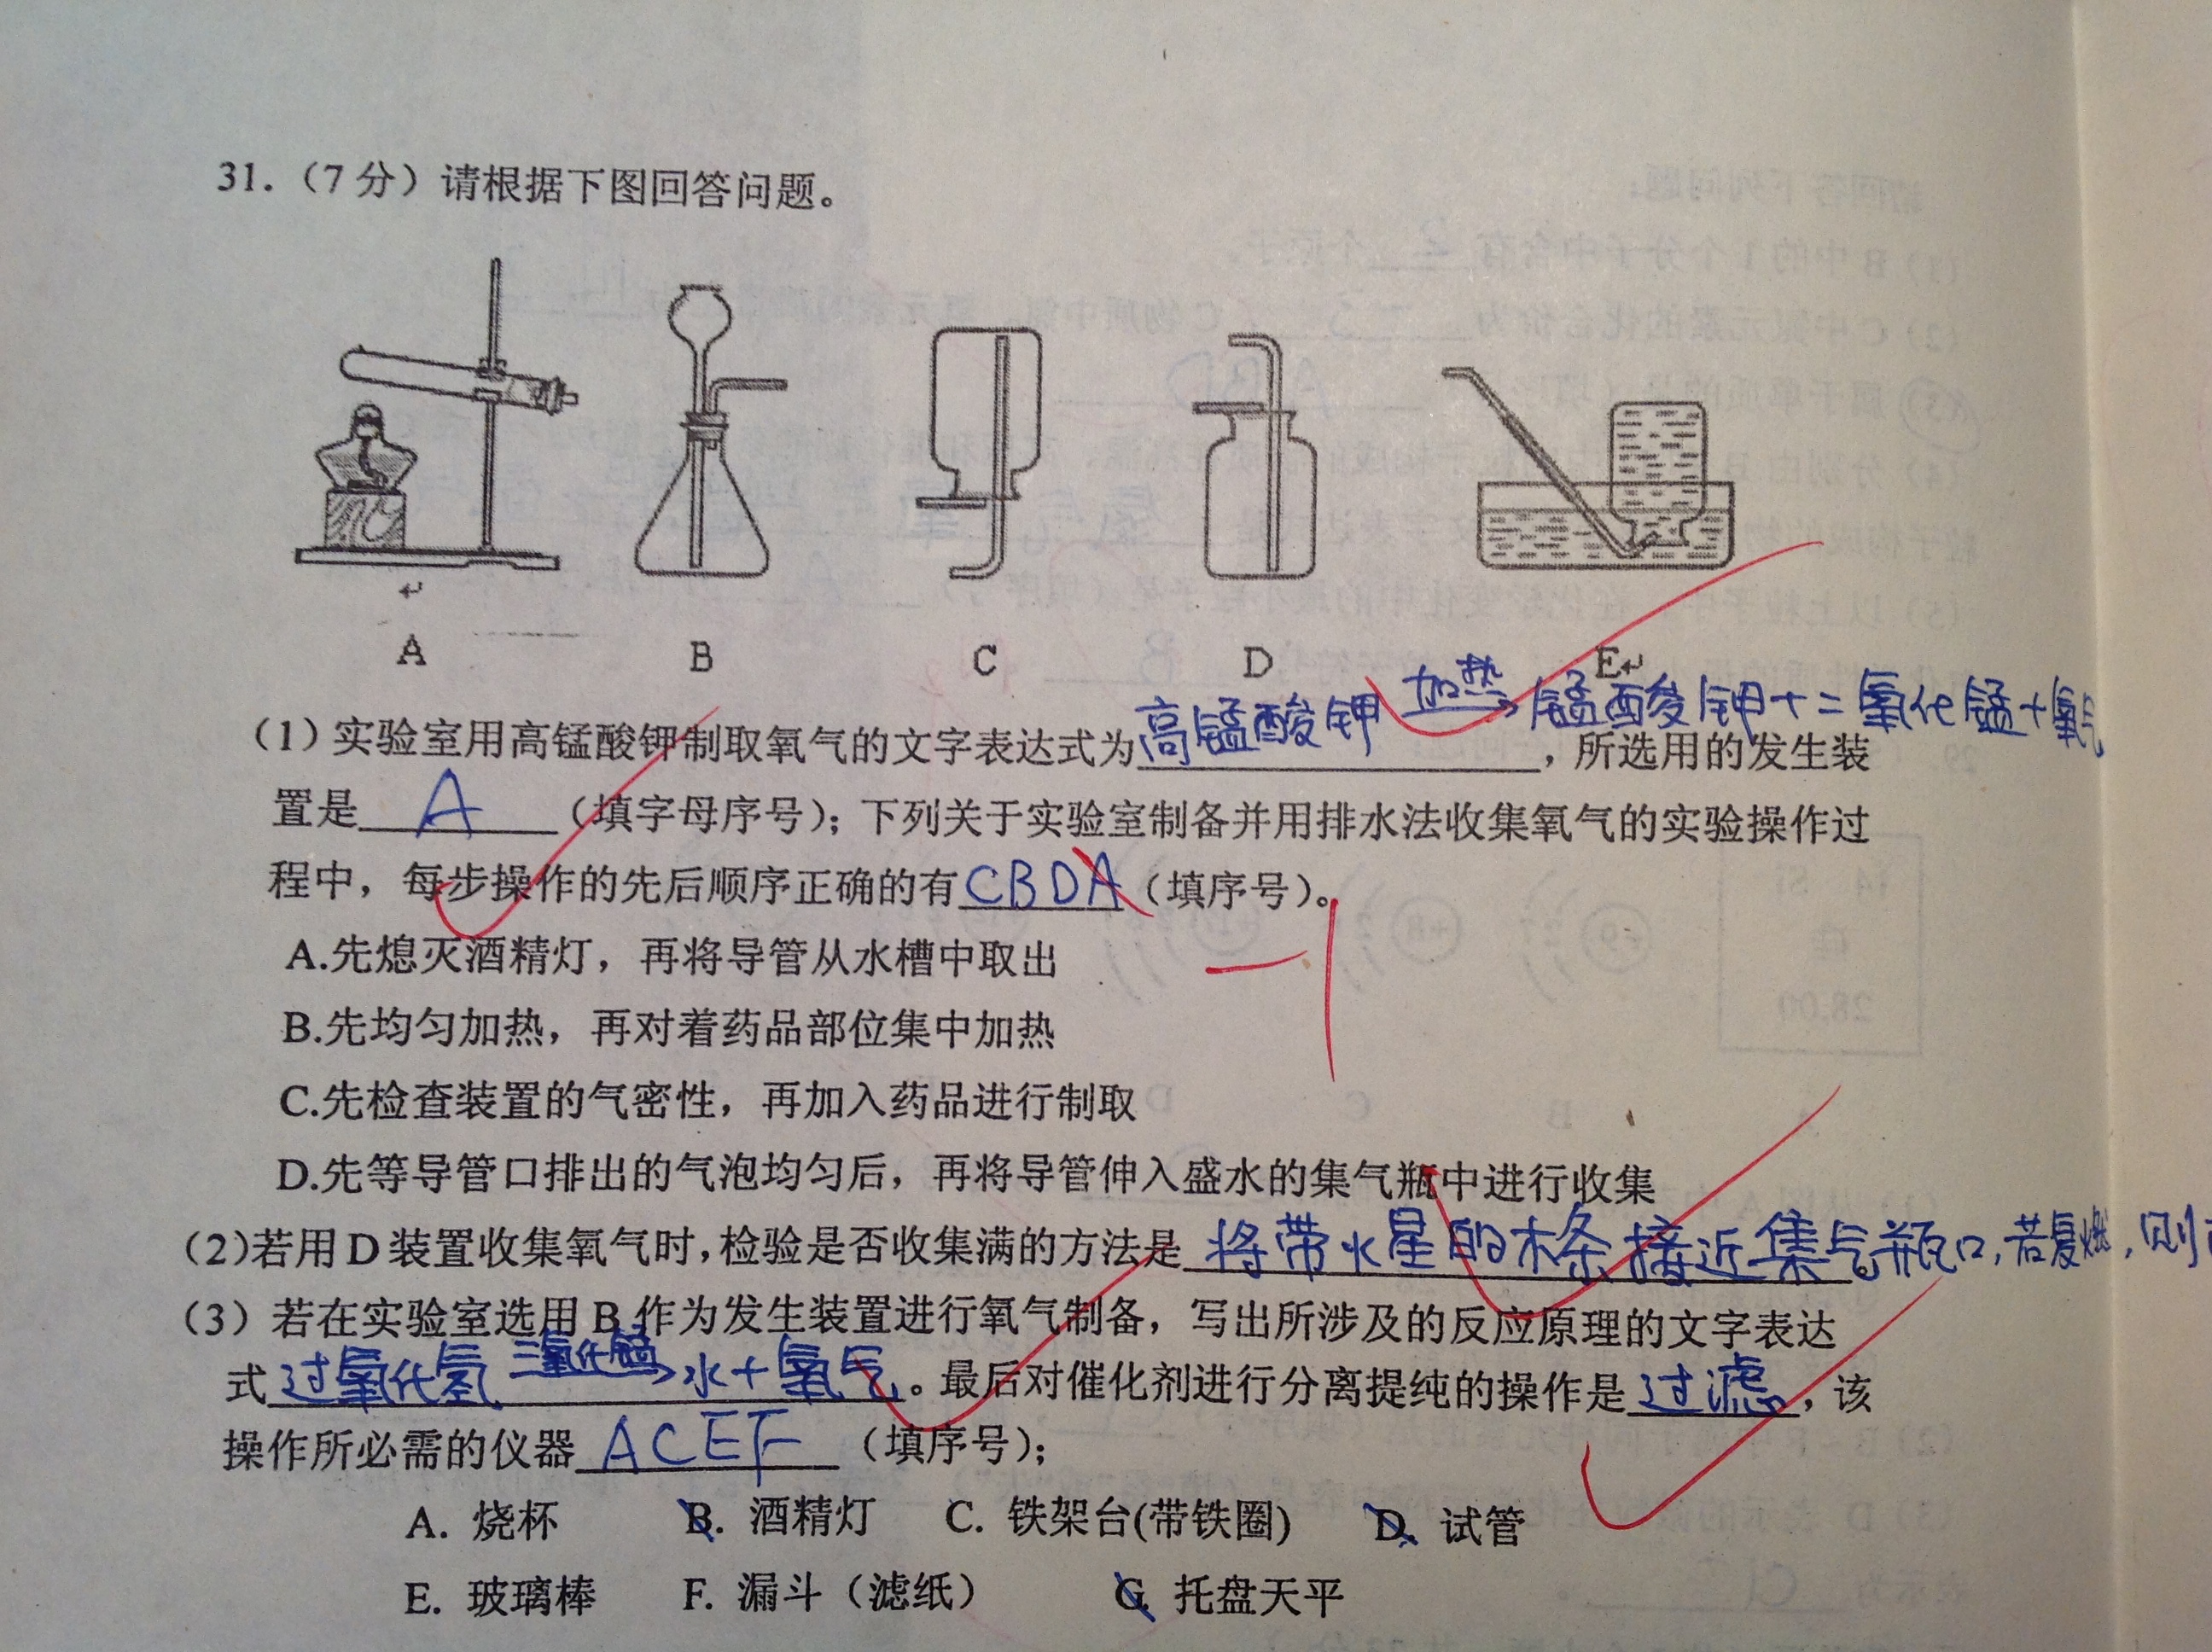 31.（7分）请根据下图回答问题。
A B C D E
（1）实验室用高锰酸钾制取氧气的文字表达式为高锰酸钾 加热→ 锰酸钾+二氧化锰+氧气，所选用的发生装
置是 A （填字母序号）；下列关于实验室制备并用排水法收集氧气的实验操作过
程中，每步操作的先后顺序正确的有CBDA（填序号）。
-1
A.先熄灭酒精灯，再将导管从水槽中取出
B.先均匀加热，再对着药品部位集中加热
C.先检查装置的气密性，再加入药品进行制取
D.先等导管口排出的气泡均匀后，再将导管伸入盛水的集气瓶中进行收集
(2)若用D装置收集氧气时，检验是否收集满的方法是 将带火星的木条接近集气瓶口，若复燃，则
（3）若在实验室选用B作为发生装置进行氧气制备，写出所涉及的反应原理的文字表达
式过氧化氢 二氧化锰→ 水+氧气。最后对催化剂进行分离提纯的操作是过滤，该
操作所必需的仪器 ACEF （填序号）；
A. 烧杯 B. 酒精灯 C. 铁架台(带铁圈) D. 试管
E. 玻璃棒 F. 漏斗（滤纸） G 托盘天平